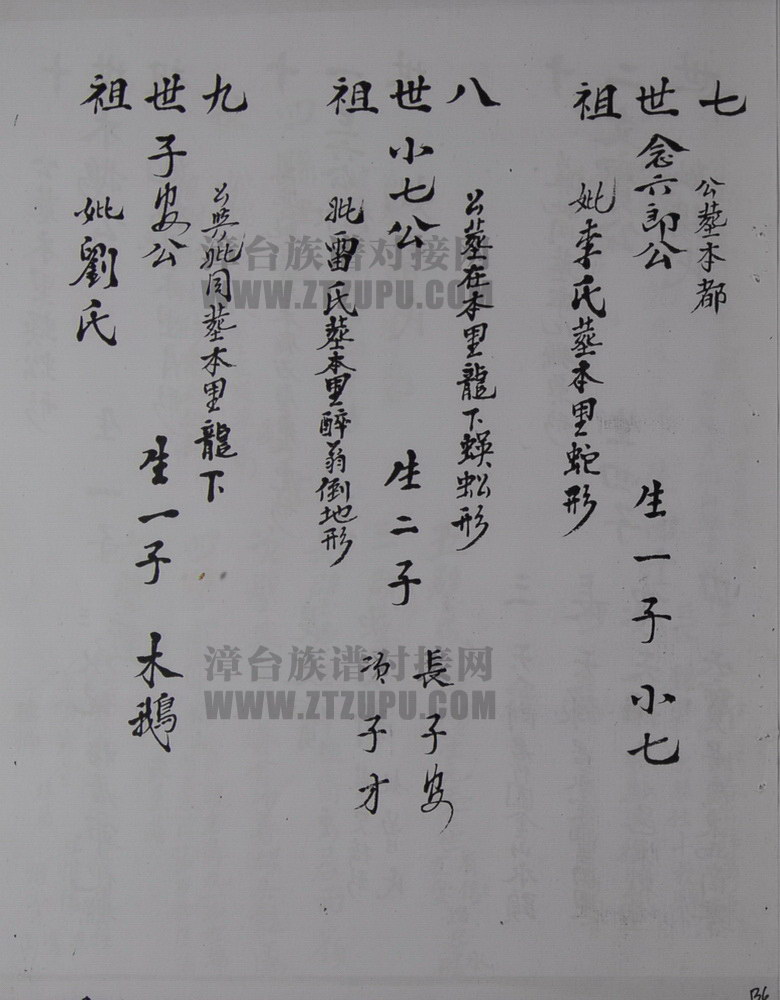 七世祖
公葬本都
念六郎公 生一子 小七
妣李氏葬本里蛇形
八世祖
公葬在本里龍下蜈蚣形
小七公 生二子
長子安
次子才
妣雷氏葬本里醉翁倒地形
九世祖
公與妣同葬本里龍下
子安公 生一子 木鵝
妣劉氏
漳台族谱对接网
WWW.ZTZUPU.COM
漳台族谱对接网
WWW.ZTZUPU.COM